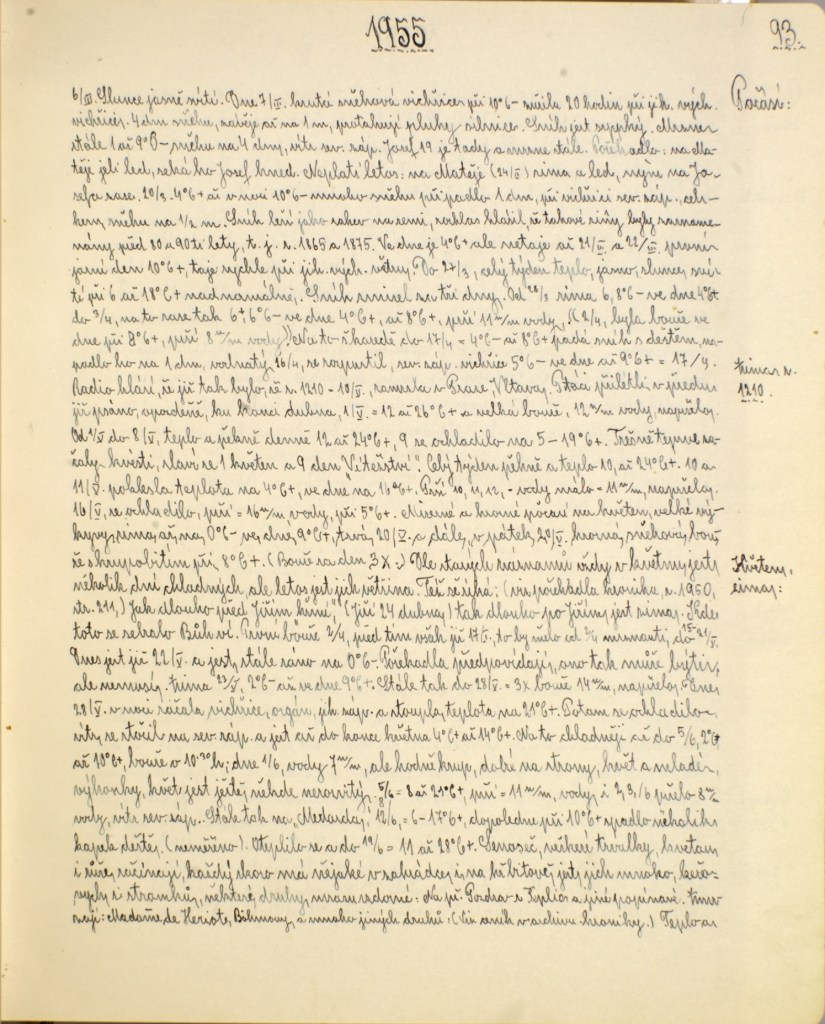 1955
93.
6/III. Slunce jasně svítí. Dne 7/III. krutá sněhová vichřice při 10°C- zuřila 20 hodin při jih. vých.
Počasí:
vichřici. 4 dm sněhu, závěje až na 1 m, protahují pluhy silnice. Sníh jest sypký. Mrazne
stále 1 až 9°C- sněhu na 4 dny, vítr sev. záp. Josef 19 je tady a mrzne stále. Pořekadlo: na Ma-
těje jeli led, seká ho Josef hned. Neplatí letos: na Matěje (24/II) zima a led, nyní na Jo-
sefa zase. 20/3. 4°C+ až v noci 10°C- mnoho sněhu připadlo 1 dm, při vichřici sev. záp., cel-
kem sněhu na 1/2 m. Sníh leží jako rakev na zemi, rozhlas hlásil, že takové zimy byly zazname-
nány před 80 a 90ti lety, t. j. r. 1865 a 1875. Ve dne je 4°C+ ale netaje až 21/III a 22/III první
jarní den 10°C+, taje rychle při jih. vých. větru. Do 27/3, celý týden teplo, jasno, slunce sví-
tí při 6 až 18°C+ nadnormálně. Sníh zmizel za tři dny. Od 28/3 zima 6, 8°C- ve dne 4°C+
do 3/4, na to zase tak 6, 6°C- ve dne 4°C+, až 8°C+, prší 11 m/m vody. (2/4, byla bouře ve
dne při 8°C+, prší 8 m/m vody.) Na to škaredě do 17/4 = 4°C- až 8°C+ padá sníh s deštěm, na-
padlo ho na 1 dm, vodnatý, 16/4, se rozpustil, sev. záp. vichřice 5°C- ve dne až 9°C+ = 17/4.
Zima r.
Radio hlásí, že již tak bylo, že r. 1210 - 10/V., zamrzla v Praze, Vltava. Ptáci přilétli, v předu
1210.
již psáno, opožděně, ku konci dubna, 1/V. = 12 až 26°C+ a velká bouře, 12 m/m vody, napršelo.
Od 1/V do 8/V, teplo a pěkně denně 12 až 24°C+, 9 se ochladilo na 5 - 19°C+. Třešně teprve za-
čaly kvésti, slaví se 1 květen a 9 den "Vítězství". Celý týden pěkně a teplo 10, až 24°C+. 10 a
11/V. poklesla teplota na 4°C+, ve dne na 16°C+. Prší 10, 11, 12, - vody málo = 11 m/m, napršelo.
16/V, se ochladilo, prší = 16 m/m, vody, při 5°C+. Mizerné a horné počasí na květen, velké vý-
kyvy, zima, až na 0°C- ve dne, 9°C+, trvá, 20/V. a dále, v pátek, 20/V. horná, sněhová, bou-
ře s krupobitím při, 8°C+. (Bouře za den 3x.) Dle starých záznamů vždy v květnu, jest,
Květen,
několik dní chladných, ale letos jest jich většina. Též se říká: (viz pořekadla kronika, r. 1950,
zima:
str. 211,) Jak dlouho před Jiřím hřmí, (Jiří 24 dubna,) tak dlouho po Jiřím, jest zima. Kde
toto se sebralo Bůh ví. První bouře 2/4, před tím však již 17/I, to by mělo od mrznouti, do
Dnes jest již 22/V. a jest, stále ráno na 0°C-. Pořekadla předpovídají, ano tak může býti,
ale nemusí. Zima 23/V, 2°C- až ve dne 9°C+. Stále tak do 28/V. = 3x bouře 14 m/m, napršelo. Dnes
28/V. v noci začala vichřice, orgán, jih. záp. a stoupla, teplota na 21°C+. Potom se ochladilo
vítr, se stočil na sev. záp. a jest až do konce května 4°C+ až 14°C+. Na to chladněji až do 5/6, 2°C+
až 10°C+, bouře v 10.30 h; dne 1/6, vody 7 m/m, ale hodně krup, dobré na stromy, květ a mladé,
výhonky, květ jest ještě někde nerozvitý. 5/6 = 8 až 21°C+, prší = 11 m/m, vody, i 2, 3/6 pršelo 8 m/m
vody, vítr sev. záp. Stále tak na, Medarda, 12/6, = 6 - 17°C+, dopoledne při 10°C+ spadlo několik
kapek deště. (neměřino). Oteplilo se a do 19/6 = 11 až 28°C+. Senoseč, veškeré trvalky, kvetou
i růže, začínají, každý skoro má nějaké v zahrádce i na hřbitově, jest, jich mnoho, keřo-
vých i stromků, některé, druhy, mrazuvzdorné: Na př. Pozdrav z Teplic a jiné popínavé.
zají: Madame, de Heriot, Böhmovy, a mnoho jiných druhů: (Viz ceník v archivu kroniky.) Teplo a